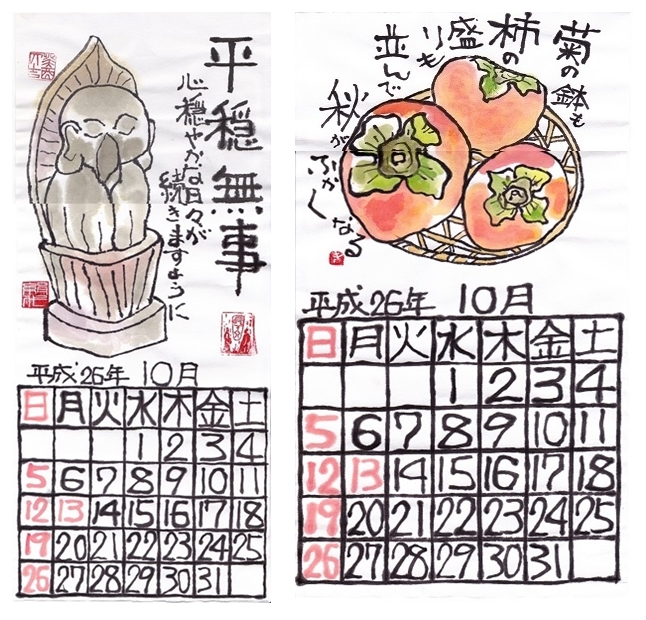 平穏無事
心穏やかな日々が
続きますように
平成26年 10月
日 月 火 水 木 金 土
1 2 3 4
5 6 7 8 9 10 11
12 13 14 15 16 17 18
19 20 21 22 23 24 25
26 27 28 29 30 31
菊の鉢も
柿の
盛りも
並んで
秋が
ふかくなる
平成26年 10月
日 月 火 水 木 金 土
1 2 3 4
5 6 7 8 9 10 11
12 13 14 15 16 17 18
19 20 21 22 23 24 25
26 27 28 29 30 31